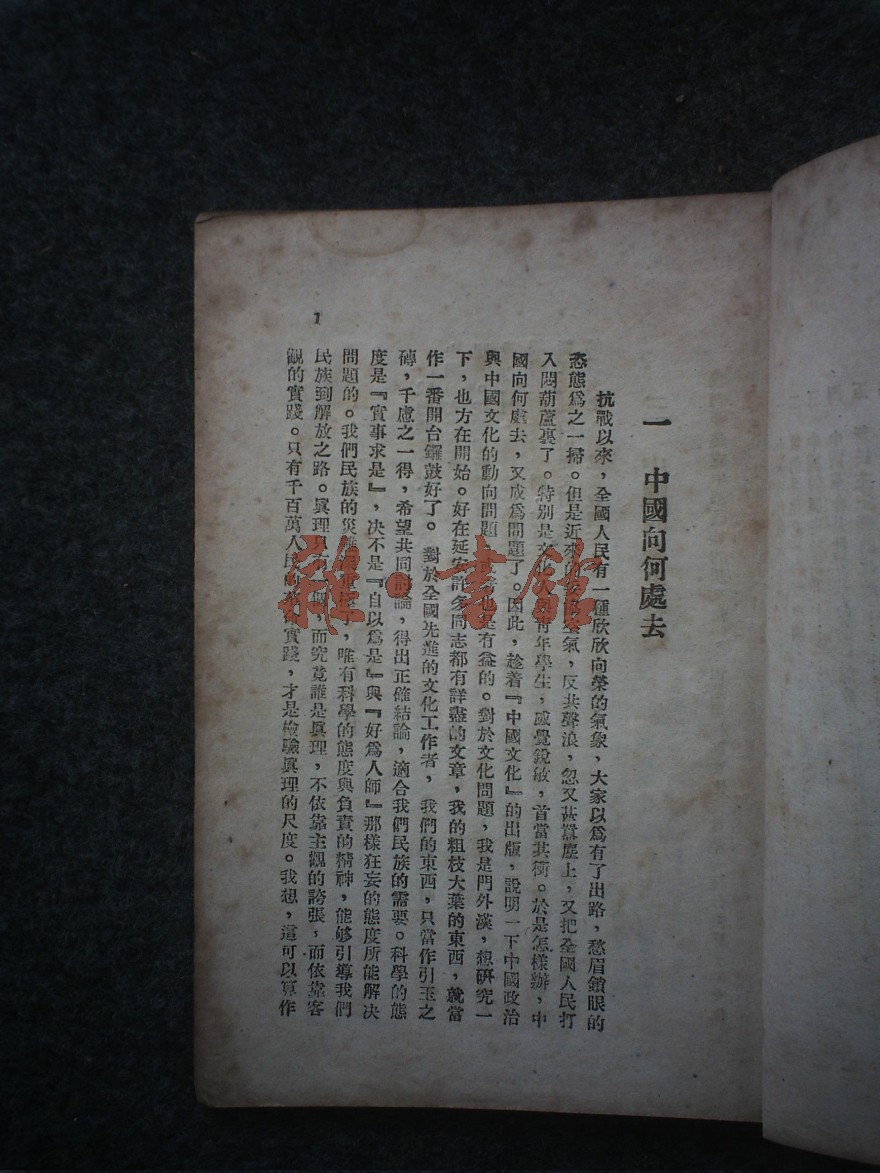 一　中國向何處去
抗戰以來，全國人民有一種欣欣向榮的氣象，大家以爲有了出路，愁眉鎖眼的
恣態爲之一掃。但是近來的空氣，反共聲浪，忽又甚囂塵上，又把全國人民打
入悶葫蘆裏了。特別是文化人與青年學生，感覺銳敏，首當其衝。於是怎樣辦，中
國向何處去，又成爲問題了。因此，趁着『中國文化』的出版，說明一下中國政治
與中國文化的動向問題，也是有益的。對於文化問題，我是門外漢，想研究一
下，也方在開始。好在延安許多同志都有詳盡的文章，我的粗枝大葉的東西，就當
作一番開台鑼鼓好了。對於全國先進的文化工作者，我們的東西，只當作引玉之
磚，千慮之一得，希望共同討論，得出正確結論，適合我們民族的需要。科學的態
度是『實事求是』，决不是『自以爲是』與『好爲人師』那樣狂妄的態度所能解決
問題的。我們民族的災難深重極了，唯有科學的態度與負責的精神，能够引導我們
民族到解放之路。眞理只有一個，而究竟誰是眞理，不依靠主觀的誇張，而依靠客
觀的實踐。只有千百萬人民的實踐，才是檢驗眞理的尺度。我想，這可以算作
1
雜·書館